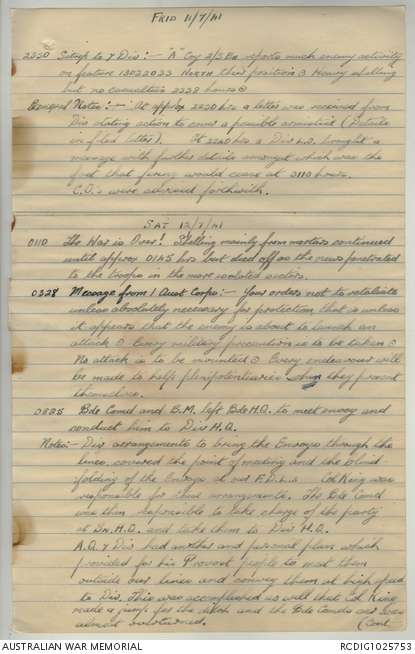 FRID 11/7/41
2220 Sitrep to 7 Div:- "A" Coy 2/3 Bn reports much enemy activity
on feature 13022033 NORTH their position ⊙ Heavy shelling
but no casualties 2220 hours ⊙
General Notes:- At approx 2220 hrs a letter was received from
Div stating action to cover a possible armistice (Details
in filed letter). At 2240 hrs a Div L.O. brought a
message with further details amongst which was the
fact that firing would cease at 0110 hours.
C.O's were advised forthwith.
SAT 12/7/41
0110 The War is Over! Shelling mainly from mortars continued
until approx 0145 hrs but died off as the news penetrated
to the troops in the more isolated sectors.
0328 Message from 1 Aust Corps:- Your orders not to retaliate
unless absolutely necessary for protection that is unless
it appears that the enemy is about to launch an
attack ⊙ Every military precaution is to be taken ⊙
No attack is to be mounted ⊙ Every endeavour will
be made to help plenipotentiaries when they present
themselves.
0825 Bde Comd and B.M. left Bde H.Q. to meet envoy and
conduct him to Div H.Q.
Notes:- Div arrangements to bring the Envoys through the
lines, covered the point of meeting and the blind-
folding of the Envoys at our F.D.L.s Col King was
responsible for these arrangements. The Bde Comd
was then responsible to take charge of the party
at Bn. H.Q. and take them to Div H.Q.
A.Q. 7 Div had another and personal plan which
provided for his Provost people to meet them
outside our lines and convey them at high speed
to Div. This was accomplished so well that Col King
made a jump for the ditch and the Bde Comds car was
almost overturned. (Cont
AUSTRALIAN WAR MEMORIAL
RCDIG1025753